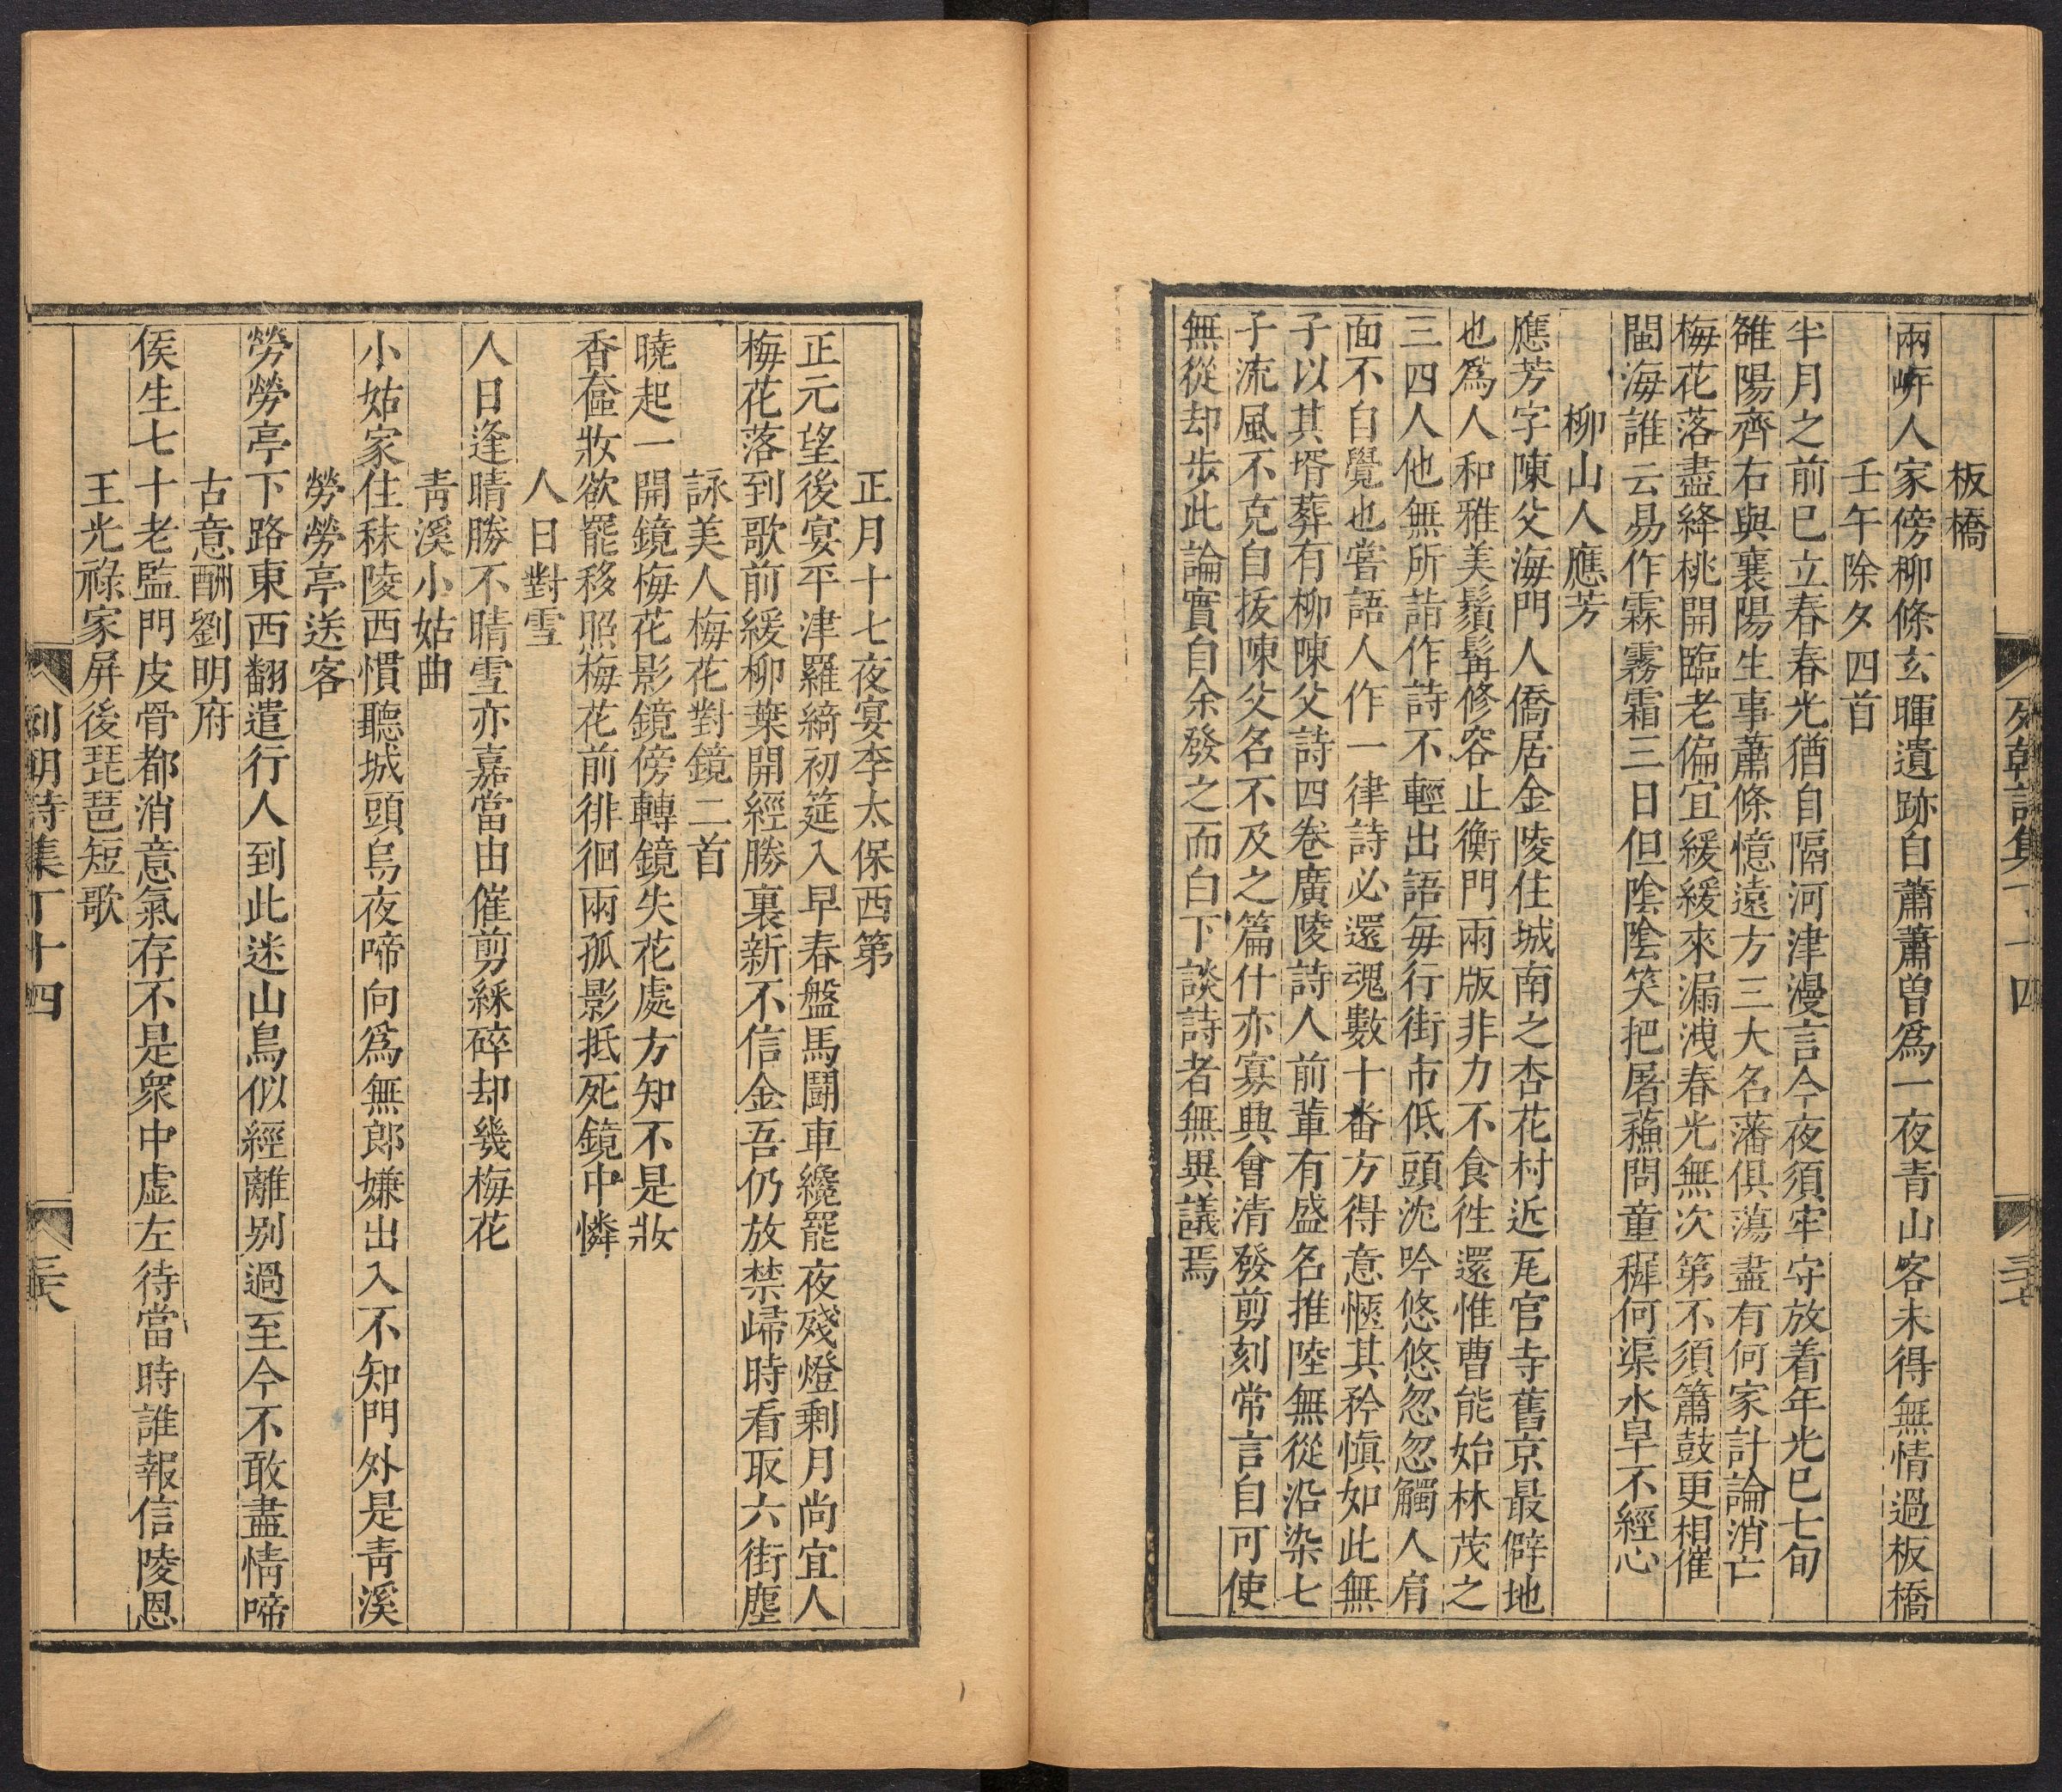 列朝詩集丁十四
三十七
板橋
兩岸人家傍柳條玄暉遺跡自蕭蕭曽爲一夜青山客未得無情過板橋
壬午除夕四首
半月之前巳立春春光猶自隔河津漫言今夜須牢守放着年光巳七旬
雒陽齊右與襄陽生事蕭條憶遠方三大名藩俱蕩盡有何家計論消亡
梅花落盡絳桃開臨老偏宜緩緩來漏洩春光無次第不須簫鼓更相催
閩海誰云易作霖霧霜三日但陰陰笑把屠蘓問童穉何渠水旱不經心
柳山人應芳
應芳字陳父海門人僑居金陵住城南之杏花村近瓦官寺舊京最僻地
也爲人和雅美鬚髯修容止衡門兩版非力不食徃還惟曹能始林茂之
三四人他無所詣作詩不輕出語毎行街市低頭沈吟悠悠忽忽觸人肩
面不自覺也嘗語人作一律詩必還魂數十番方得意愜其矜慎如此無
子以其壻葬有柳陳父詩四卷廣陵詩人前輩有盛名推陸無從沿染七
子流風不克自拔陳父名不及之篇什亦寡興會清發剪刻常言自可使
無從却步此論實自余發之而白下談詩者無異議焉
正月十七夜宴李太保西第
正元望後宴平津羅綺初筵入早春盤馬鬪車纔罷夜殘燈剩月尚宜人
梅花落到歌前緩柳葉開經勝裏新不信金吾仍放禁歸時看取六街塵
詠美人梅花對鏡二首
曉起一開鏡梅花影鏡傍轉鏡失花處方知不是妝
香奩妝欲罷移照梅花前徘徊兩孤影抵死鏡中憐
人日對雪
人日逢晴勝不晴雪亦嘉當由催剪綵碎却幾梅花
青溪小姑曲
小姑家住秣陵西慣聽城頭烏夜啼向爲無郎嫌出入不知門外是青溪
勞勞亭送客
勞勞亭下路東西翻遣行人到此迷山鳥似經離别過至今不敢盡情啼
古意酬劉明府
侯生七十老監門皮骨都消意氣存不是衆中虚左待當時誰報信陵恩
王光祿家屏後琵琶短歌
列朝詩集丁十四
三十八